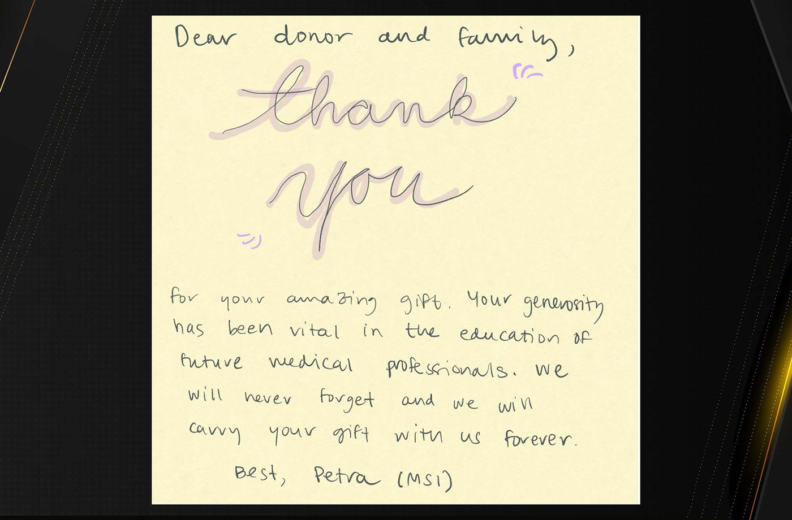 Dear donor and family,
thank
you
for your amazing gift. Your generosity
has been vital in the education of
future medical professionals. We
will never forget and we will
carry your gift with us forever.
Best, Petra (MS1)